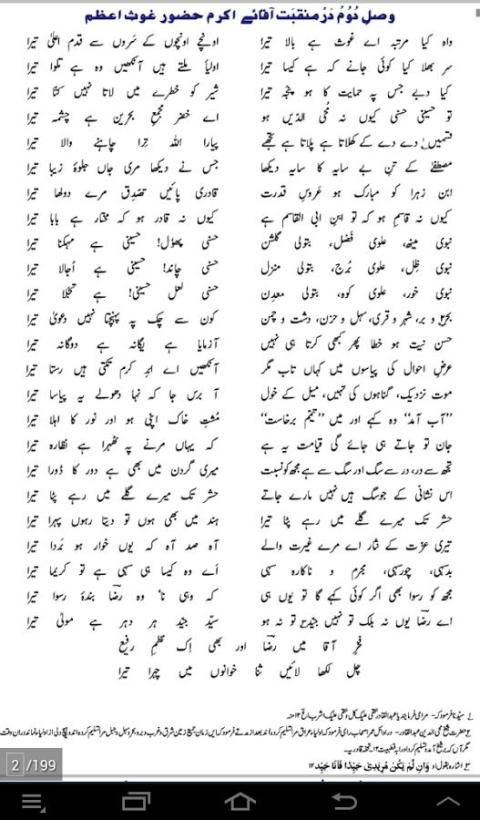 وصلِ دُوُم دَر منقبَت آقائے اکرم حضور غوث اعظم
واہ کیا مرتبہ اے غوث ہے بالا تیرا اونچے اونچوں کے سَروں سے قدم اعلیٰ تیرا
سر بھلا کیا کوئی جانے کہ ہے کیسا تیرا اولیا ملتے ہیں آنکھیں وہ ہے تلوا تیرا
کیا دبے جس پہ حمایت کا ہو پنجہ تیرا شیر کو خطرے میں لاتا نہیں کتا تیرا
تو حسینی حسنی کیوں نہ محی الدّیں ہو اے خضر مجمعِ بحرین ہے چشمہ تیرا
قسمیں دے دے کے کھلاتا ہے پلاتا ہے تجھے پیارا اللہ ترا چاہنے والا تیرا
مصطفےٰ کے تنِ بے سایہ کا سایہ دیکھا جس نے دیکھا مری جاں جلوۂ زیبا تیرا
ابن زہرا کو مبارک ہو عروسِ قدرت قادری پائیں تصدق مرے دولھا تیرا
کیوں نہ قاسم ہو کہ تو ابنِ ابی القاسم ہے کیوں نہ قادر ہو کہ مختار ہے بابا تیرا
نبوی مینھ، علوی فصل، بتولی گلشن حسنی پھول! حسینی ہے مہکنا تیرا
نبوی ظل، علوی برج، بتولی منزل حسنی چاند! حسینی ہے اُجالا تیرا
نبوی خور، علوی کوہ، بتولی معدِن حسنی لعل حسینی! ہے تجلّا تیرا
بحر و بر، شہر و قریٰ، سہل و حزن، دشت و چمن کون سے چک پہ پہنچتا نہیں دعویٰ تیرا
حسن نیت ہو خطا پھر کبھی کرتا ہی نہیں آزمایا ہے یگانہ ہے دوگانہ تیرا
عرضِ احوال کی پیاسوں میں کہاں تاب مگر آنکھیں اے ابرِ کرم تکتی ہیں رستا تیرا
موت نزدیک، گناہوں کی تہیں، میل کے خول آ برس جا کہ نہا دھولے یہ پیاسا تیرا
”آب آمد“ وہ کہے اور میں ”تیمّم برخاست“ مُشتِ خاک اپنی ہو اور نور کا اہلا تیرا
جان تو جاتے ہی جائے گی قیامت یہ ہے کہ یہاں مرنے پہ ٹھہرا ہے نظارہ تیرا
تجھ سے در، در سے سگ اور سگ سے ہے مجھ کو نسبت میری گردن میں بھی ہے دور کا ڈورا تیرا
اس نشانی کے جو سگ ہیں نہیں مارے جاتے حشر تک میرے گلے میں رہے پٹا تیرا
حشر تک میرے گلے میں رہے پٹا تیرا ہند میں بھی ہوں تو دیتا رہوں پہرا تیرا
تیری عزت کے نثار اے مرے غیرت والے آہ صد آہ کہ یوں خوار ہو بُردا تیرا
بد سہی، چور سہی، مجرم و ناکارہ سہی اُے وہ کیسا ہی سہی ہے تو کریما تیرا
مجھ کو رسوا بھی اگر کوئی کہے گا تو یوں ہی کہ وہی نا، وہ رضاؔ بندۂ رسوا تیرا
اے رضاؔ یوں نہ بلک تو نہیں جیّد تو نہ ہو سیّدِ جیّدِ ہر دہر ہے مولیٰ تیرا
فخرِ آقا میں رضاؔ اور بھی اِک نظمِ رفیع
چل لکھا لائیں ثنا خوانوں میں چہرا تیرا
وَاِنْ لَّمْ یَکُنْ مُرِیْدِیْ جَیِّدًا فَاَنَا جَیِّدٌ ۱۲
2 /199